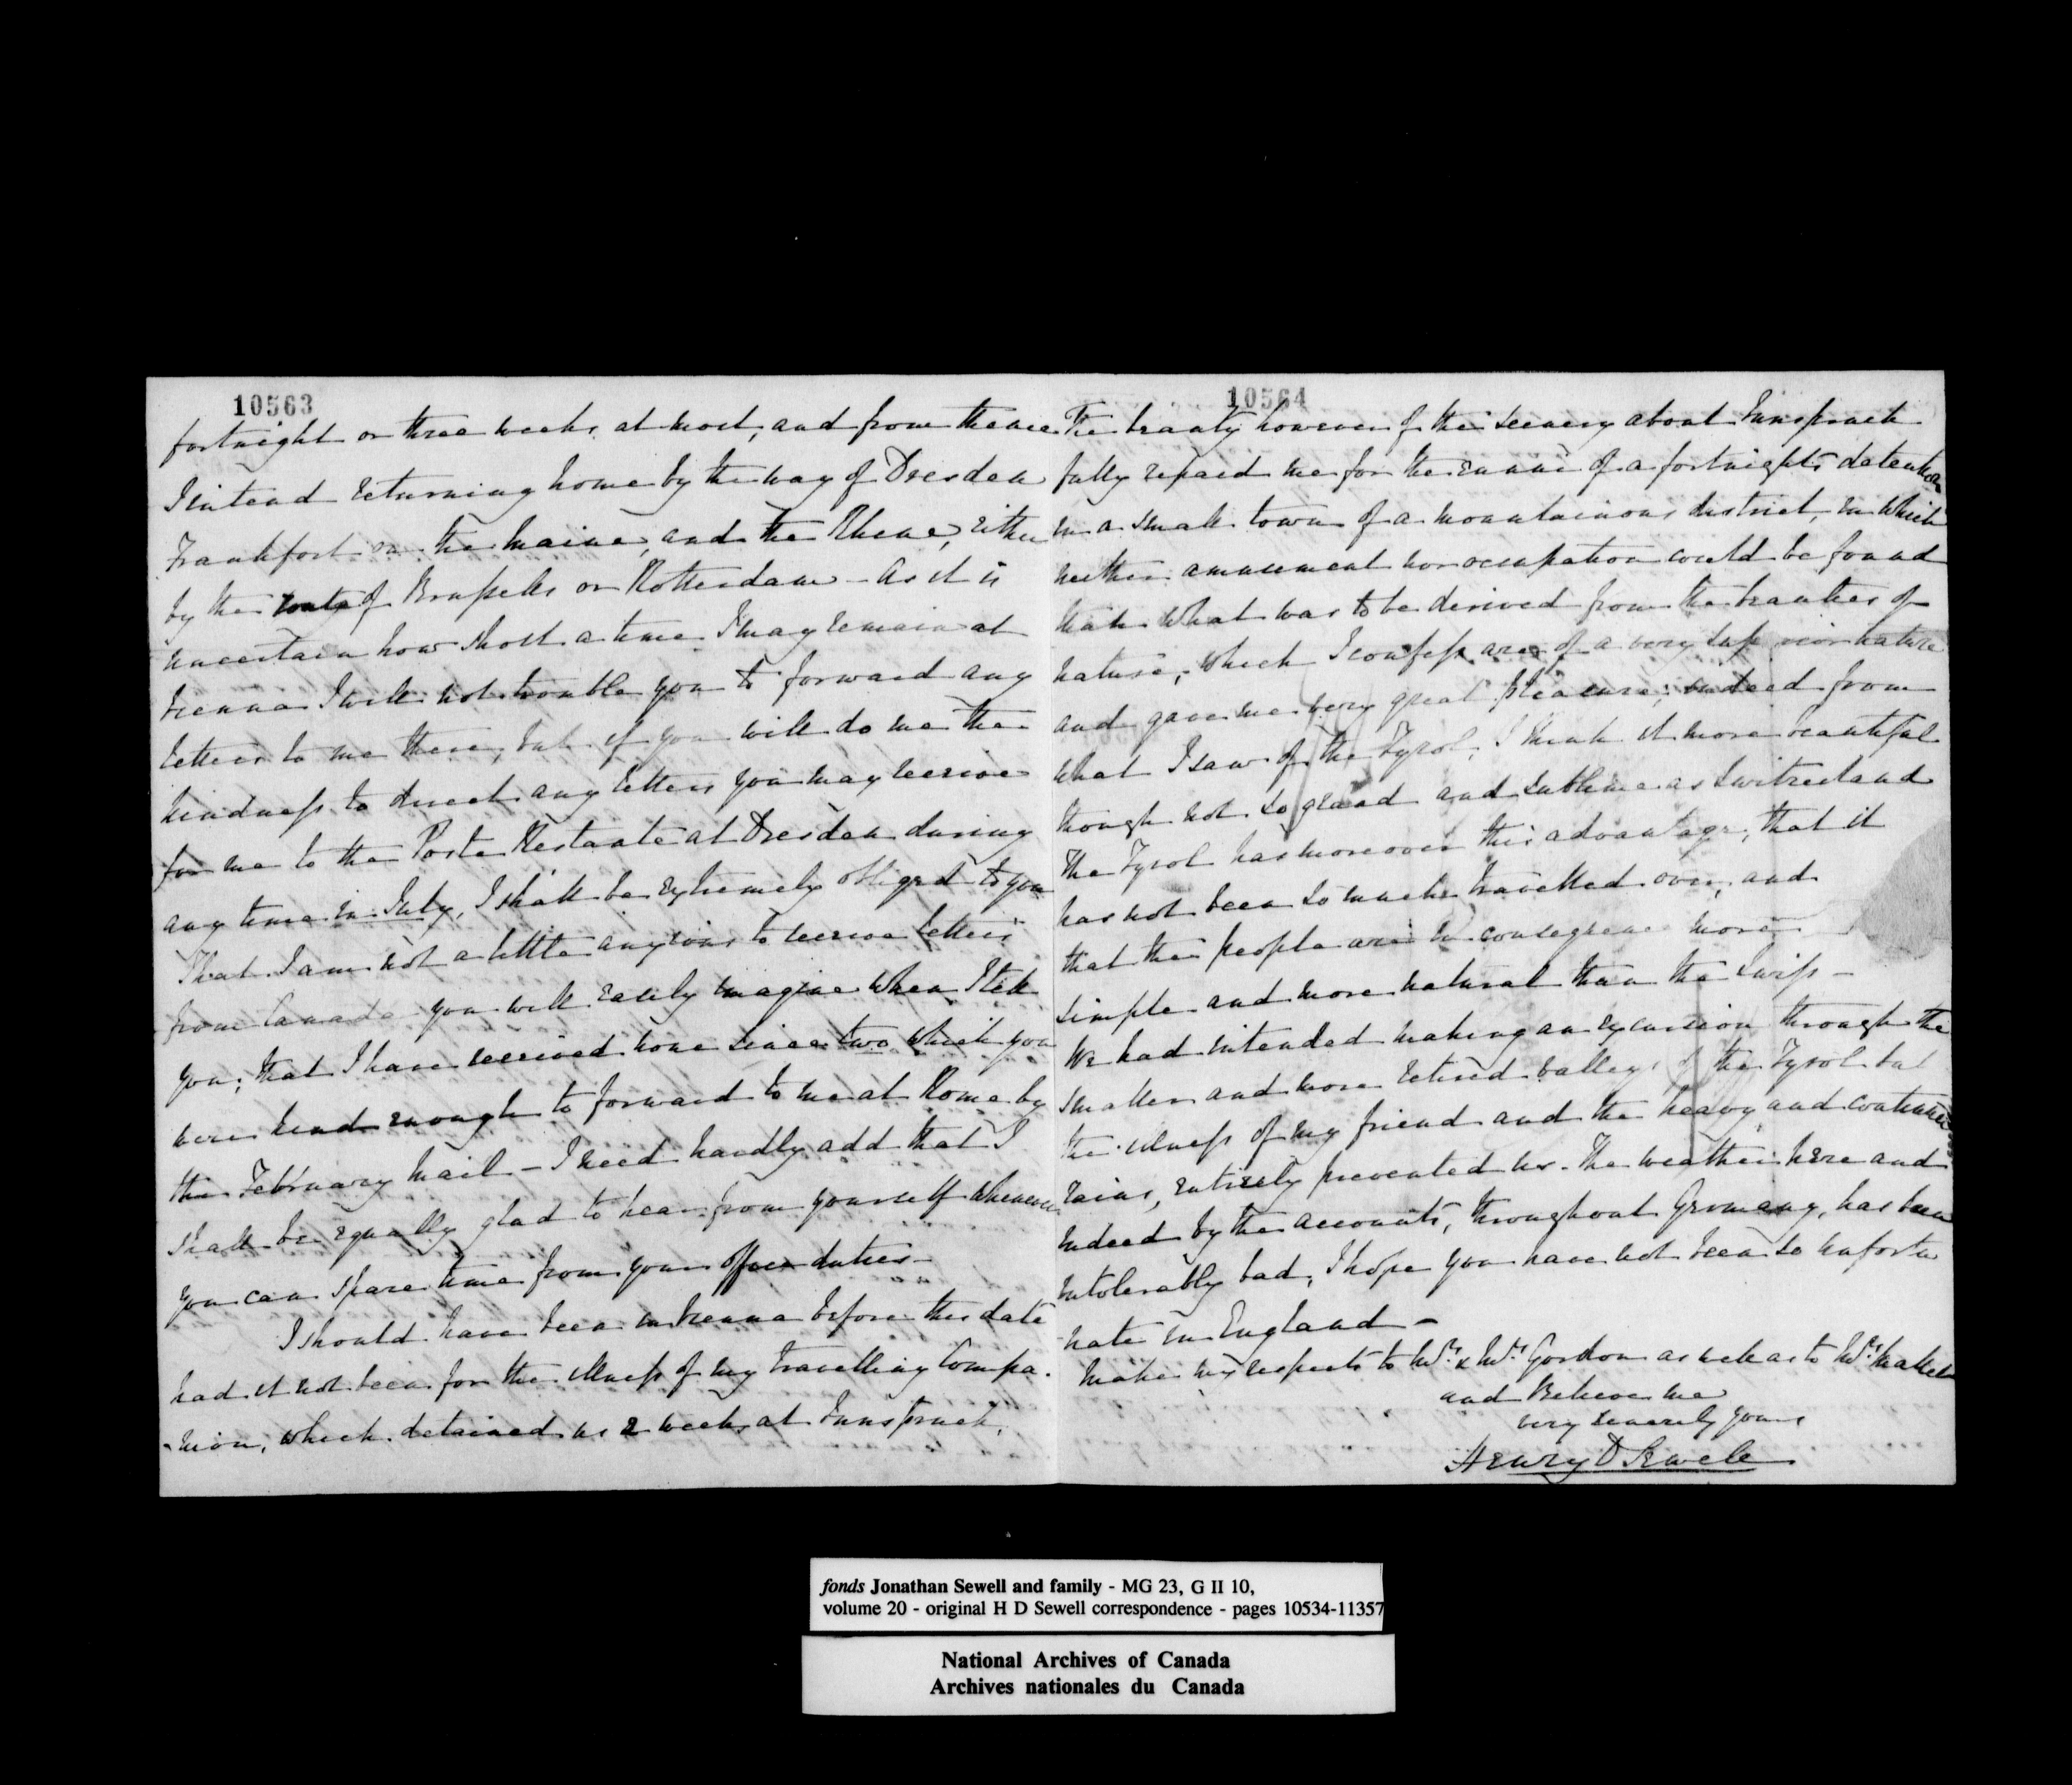 10563
fortnight or three weeks at most, and from thence
I intend returning home by the way of Dresden
Frankfort on the Maine, and the Rhine, either
by the route of Brussells or Rotterdam - As it is
uncertain how short a time I may remain at
Vienna I will not trouble you to forward any
letters to me there, but if you will do me the
kindness to direct any letters you may receive
for me to the Poste Restante at Dresden during
any time in July, I shall be extremely obliged to you
That I am not a little anxious to receive letters
from Canada you will easily imagine when I tell
you, that I have received none since two which you
were kind enough to forward to me at Rome by
the February mail - I need hardly add that I
shall be equally glad to hear from yourself whenever
you can spare time from your office duties -
I should have been in Vienna before this date
had it not been for the illness of my travelling Compa-
-nion, which detained us 2 weeks at Innspruck,
10564
The beauty however of the scenery about Innspruck
fully repaid me for the ennui of a fortnight's detention
in a small town of a mountainous district, in which
neither amusement nor occupation could be found
than what was to be derived from the beauties of
nature, which I confess are of a very superior nature
and gave me very great pleasure; indeed from
what I saw of the Tyrol, I think it more beautiful
though not so grand and sublime as Switzerland
The Tyrol has moreover this advantage, that it
has not been so much travelled over, and
that the people are in consequence more
simple and more natural than the Swiss -
We had intended making an excursion through the
smaller and more retired valleys of the Tyrol but
the illness of my friend and the heavy and continued
rains, entirely prevented us - The weather here and
indeed by the accounts, throughout Germany, has been
intolerably bad, I hope you have not been so unfortu
nate in England -
Make my respects to Mr. & Mrs. Gordon as well as to
and Believe me
very sincerely yours
Henry D Sewell
fonds Jonathan Sewell and family - MG 23, G II 10,
volume 20 - original H D Sewell correspondence - pages 10534-11357
National Archives of Canada
Archives nationales du Canada